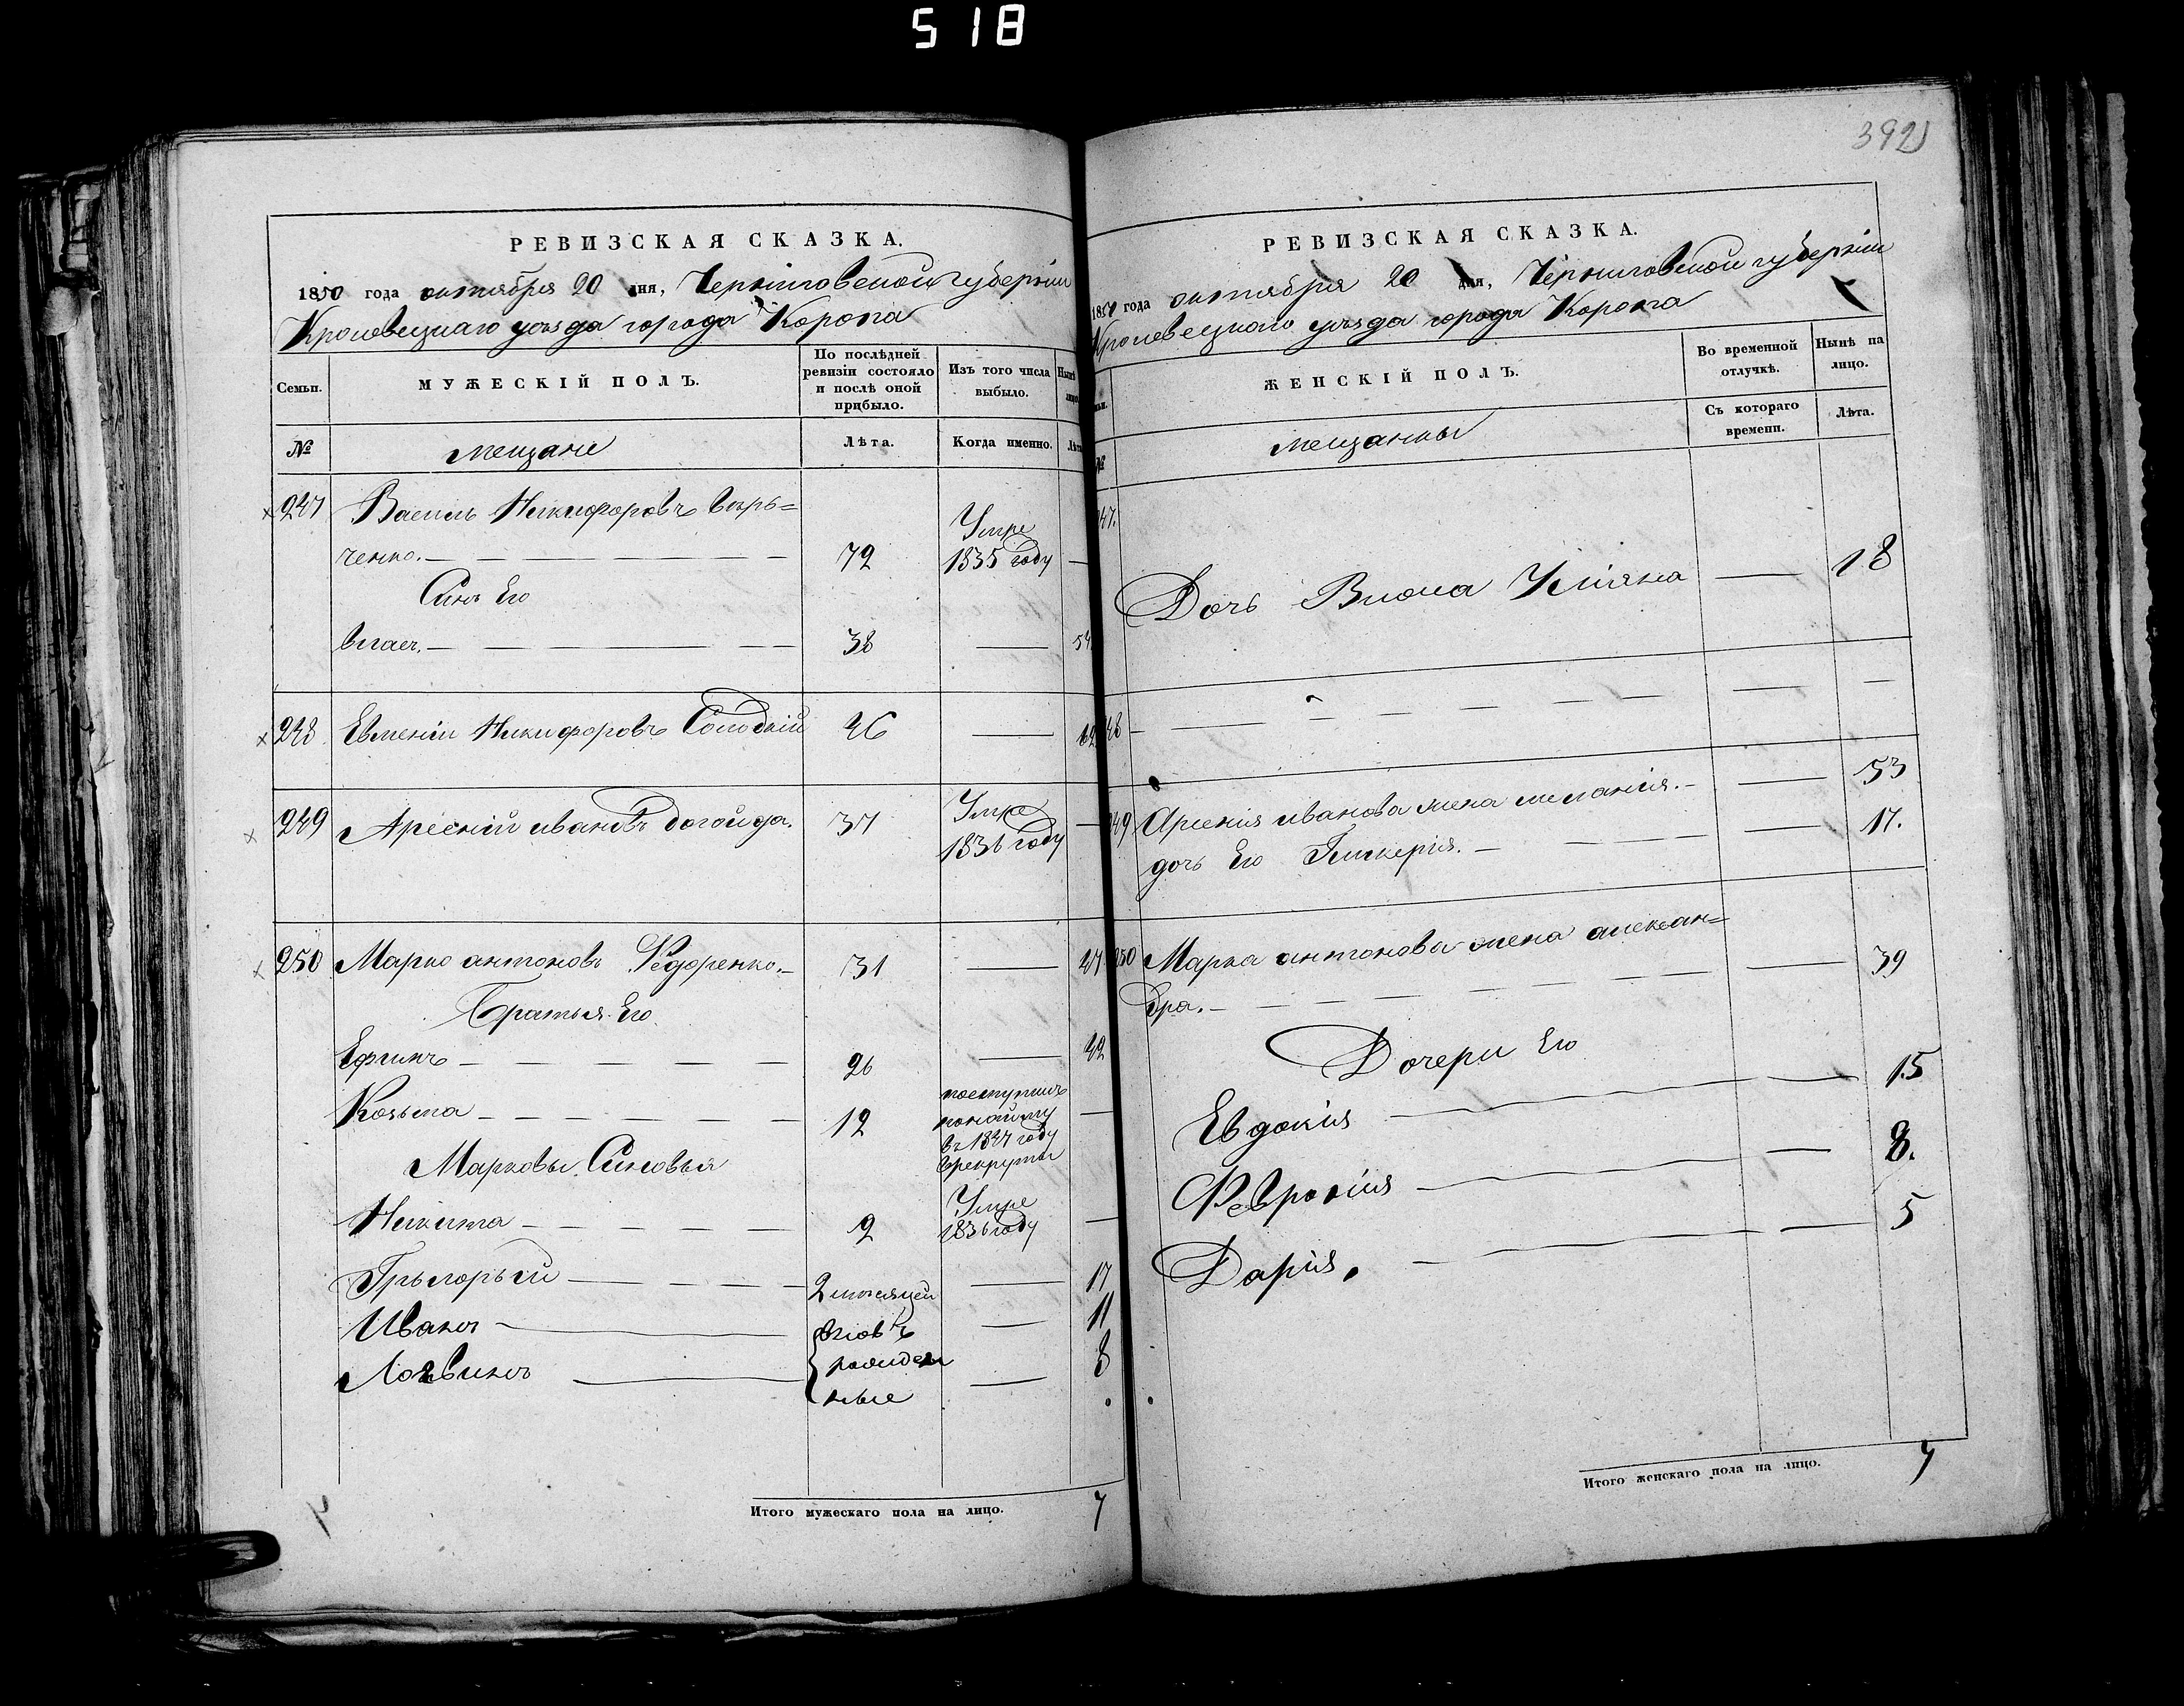 518
392
РЕВИЗСКАЯ СКАЗКА.
1850 года октября 20 дня, Черниговской губернии
Кролевецкаго уезда города Коропа
Семьи.
МУЖЕСКІЙ ПОЛЪ.
По послѣдней ревизіи состояло и послѣ оной прибыло.
Изъ того числа выбыло.
Нынѣ лицо
№
мещане
Лѣта.
Когда именно.
Лѣта
247 Василь Никифоровъ
ченко. 72 Умре 1835 году
Синъ Его
38 54
248 Евмений Никифоровъ Солодкій 46 62
249 Арсений ивановъ догойда. 37 Умре 1836 году
250 Марко антоновъ Федоренко. 31 47
Братья Его
Ефимъ 26 42
Козьма 12 поступилъ понайму въ 1847 году врекруты
Марковы Синовья
Никита 2 Умре 1836 году
Грыгорый 2 месяцей 17
Иванъ вновъ 11
Логвинъ рожден 8
ные
Итого мужескаго пола на лицо. 7
РЕВИЗСКАЯ СКАЗКА.
1850 года октября 20 дня, Черниговской губернии
Кролевецкаго уезда города Коропа
ЖЕНСКІЙ ПОЛЪ.
Во временной отлучкѣ.
Нынѣ на лицо.
№
мещанки
Съ котораго времени.
Лѣта.
247. Дочь Власа Улияна 18
248
249 Арсения иванова жена мелания. 53
дочь Его Гликерия. 17.
250 Марка антонова жена алексан=
дра. 39
Дочери Его
Евдокия 15
Феврония 8.
Дария. 5
Итого женскаго пола на лицо. 7